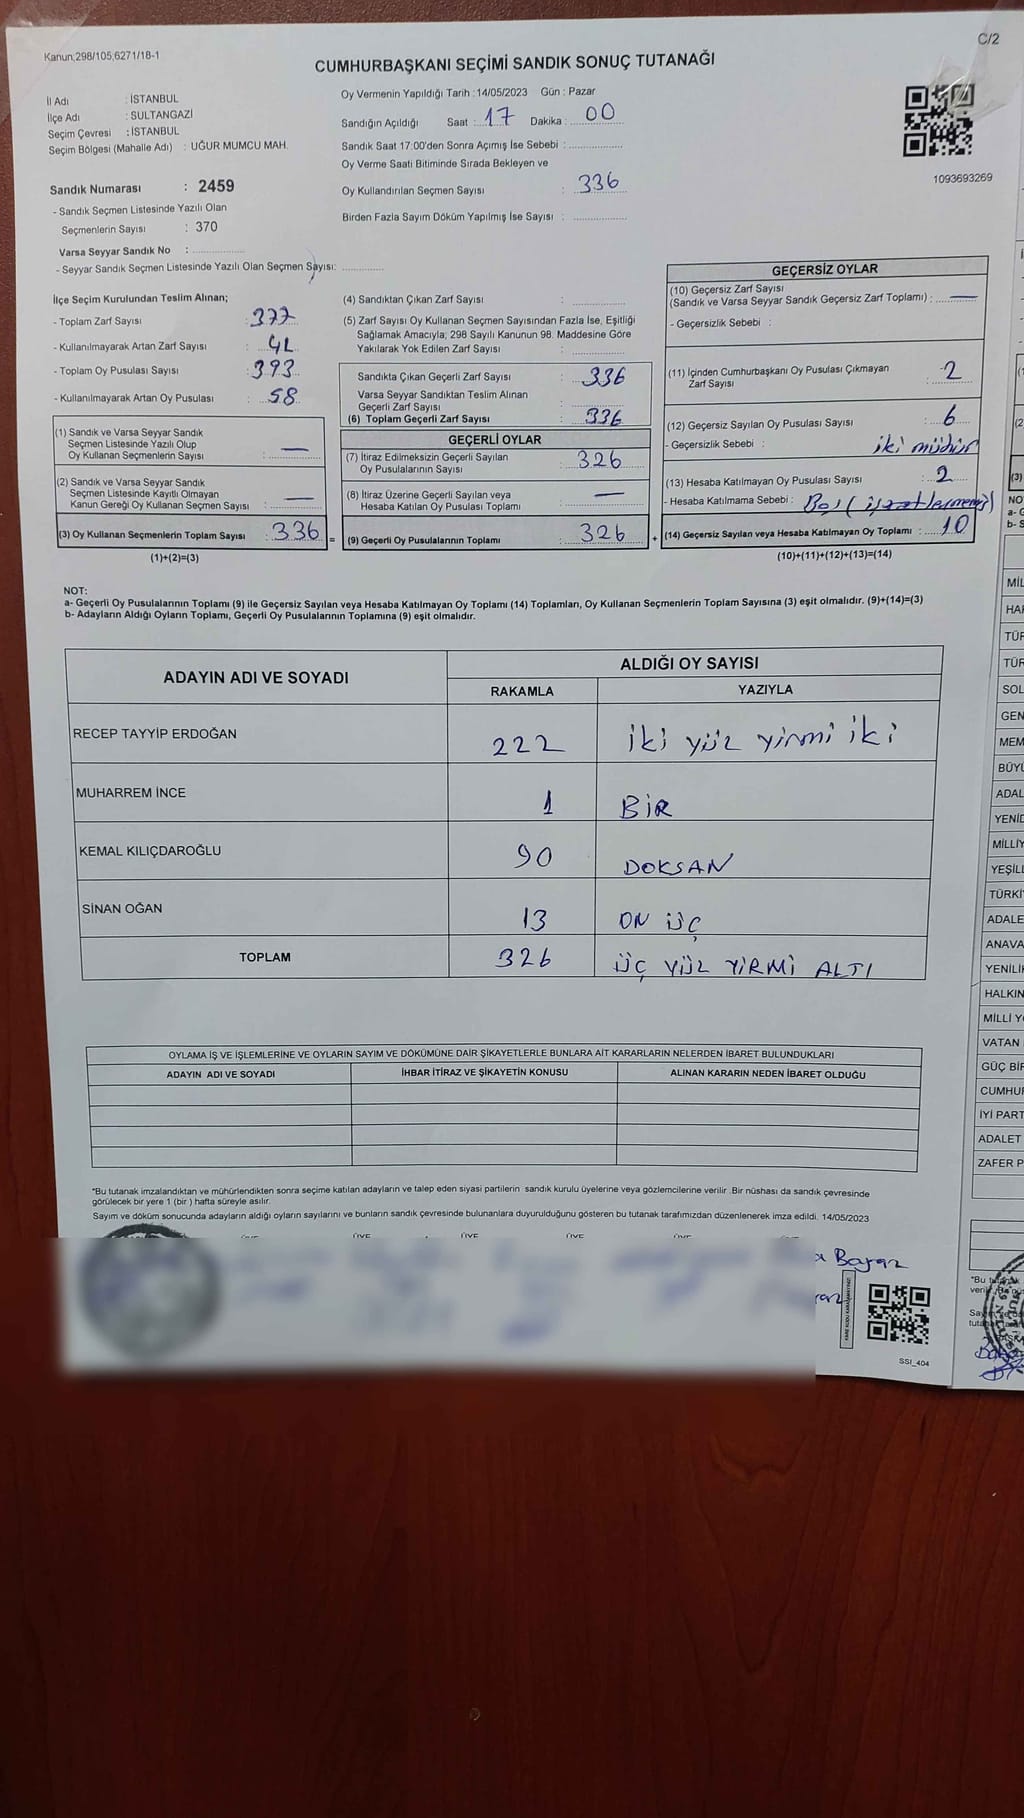 Kanun;298/105;6271/18-1
C/2
CUMHURBAŞKANI SEÇİMİ SANDIK SONUÇ TUTANAĞI
İl Adı : İSTANBUL
İlçe Adı : SULTANGAZİ
Seçim Çevresi : İSTANBUL
Seçim Bölgesi (Mahalle Adı) : UĞUR MUMCU MAH.
Oy Vermenin Yapıldığı Tarih :14/05/2023 Gün : Pazar
Sandığın Açıldığı Saat : 17 Dakika : 00
Sandık Saat 17:00'den Sonra Açımış İse Sebebi :
Oy Verme Saati Bitiminde Sırada Bekleyen ve
Oy Kullandırılan Seçmen Sayısı : 336
Birden Fazla Sayım Döküm Yapılmış İse Sayısı :
1093693269
Sandık Numarası : 2459
- Sandık Seçmen Listesinde Yazılı Olan
Seçmenlerin Sayısı : 370
Varsa Seyyar Sandık No :
- Seyyar Sandık Seçmen Listesinde Yazılı Olan Seçmen Sayısı:
İlçe Seçim Kurulundan Teslim Alınan;
- Toplam Zarf Sayısı : 377
- Kullanılmayarak Artan Zarf Sayısı : 41
- Toplam Oy Pusulası Sayısı : 393
- Kullanılmayarak Artan Oy Pusulası : 58
(1) Sandık ve Varsa Seyyar Sandık
Seçmen Listesinde Yazılı Olup
Oy Kullanan Seçmenlerin Sayısı : —
(2) Sandık ve Varsa Seyyar Sandık
Seçmen Listesinde Kayıtlı Olmayan
Kanun Gereği Oy Kullanan Seçmen Sayısı : —
(3) Oy Kullanan Seçmenlerin Toplam Sayısı : 336 =
(1)+(2)=(3)
(4) Sandıktan Çıkan Zarf Sayısı :
(5) Zarf Sayısı Oy Kullanan Seçmen Sayısından Fazla İse, Eşitliği
Sağlamak Amacıyla; 298 Sayılı Kanunun 98. Maddesine Göre
Yakılarak Yok Edilen Zarf Sayısı :
Sandıkta Çıkan Geçerli Zarf Sayısı : 336
Varsa Seyyar Sandıktan Teslim Alınan
Geçerli Zarf Sayısı :
(6) Toplam Geçerli Zarf Sayısı : 336
GEÇERLİ OYLAR
(7) İtiraz Edilmeksizin Geçerli Sayılan
Oy Pusulalarının Sayısı : 326
(8) İtiraz Üzerine Geçerli Sayılan veya
Hesaba Katılan Oy Pusulası Toplamı : —
(9) Geçerli Oy Pusulalarının Toplamı : 326 +
GEÇERSİZ OYLAR
(10) Geçersiz Zarf Sayısı
(Sandık ve Varsa Seyyar Sandık Geçersiz Zarf Toplamı) : —
- Geçersizlik Sebebi :
(11) İçinden Cumhurbaşkanı Oy Pusulası Çıkmayan
Zarf Sayısı : 2
(12) Geçersiz Sayılan Oy Pusulası Sayısı : 6
- Geçersizlik Sebebi : iki mühür
(13) Hesaba Katılmayan Oy Pusulası Sayısı : 2
- Hesaba Katılmama Sebebi : Boş
(14) Geçersiz Sayılan veya Hesaba Katılmayan Oy Toplamı : 10
(10)+(11)+(12)+(13)=(14)
NOT:
a- Geçerli Oy Pusulalarının Toplamı (9) ile Geçersiz Sayılan veya Hesaba Katılmayan Oy Toplamı (14) Toplamları, Oy Kullanan Seçmenlerin Toplam Sayısına (3) eşit olmalıdır. (9)+(14)=(3)
b- Adayların Aldığı Oyların Toplamı, Geçerli Oy Pusulalarının Toplamına (9) eşit olmalıdır.
ADAYIN ADI VE SOYADI
ALDIĞI OY SAYISI
RAKAMLA YAZIYLA
RECEP TAYYİP ERDOĞAN 222 iki yüz yirmi iki
MUHARREM İNCE 1 BİR
KEMAL KILIÇDAROĞLU 90 DOKSAN
SİNAN OĞAN 13 ON ÜÇ
TOPLAM 326 ÜÇ YÜZ YİRMİ ALTI
OYLAMA İŞ VE İŞLEMLERİNE VE OYLARIN SAYIM VE DÖKÜMÜNE DAİR ŞİKAYETLERLE BUNLARA AİT KARARLARIN NELERDEN İBARET BULUNDUKLARI
ADAYIN ADI VE SOYADI İHBAR İTİRAZ VE ŞİKAYETİN KONUSU ALINAN KARARIN NEDEN İBARET OLDUĞU
*Bu tutanak imzalandıktan ve mühürlendikten sonra seçime katılan adayların ve talep eden siyasi partilerin sandık kurulu üyelerine veya gözlemcilerine verilir .Bir nüshası da sandık çevresinde
görülecek bir yere 1 (bir ) hafta süreyle asılır.
Sayım ve döküm sonucunda adayların aldığı oyların sayılarını ve bunların sandık çevresinde bulunanlara duyurulduğunu gösteren bu tutanak tarafımızdan düzenlenerek imza edildi. 14/05/2023
SSI_404
SOL
GEN
MEM
ADAL
YENİD
MİLLİY
YEŞİLL
TÜRKİY
ADALE
ANAVA
YENİLİK
HALKIN
MİLLİ YO
VATAN
GÜÇ BİR
CUMHUR
İYİ PART
ADALET
ZAFER P